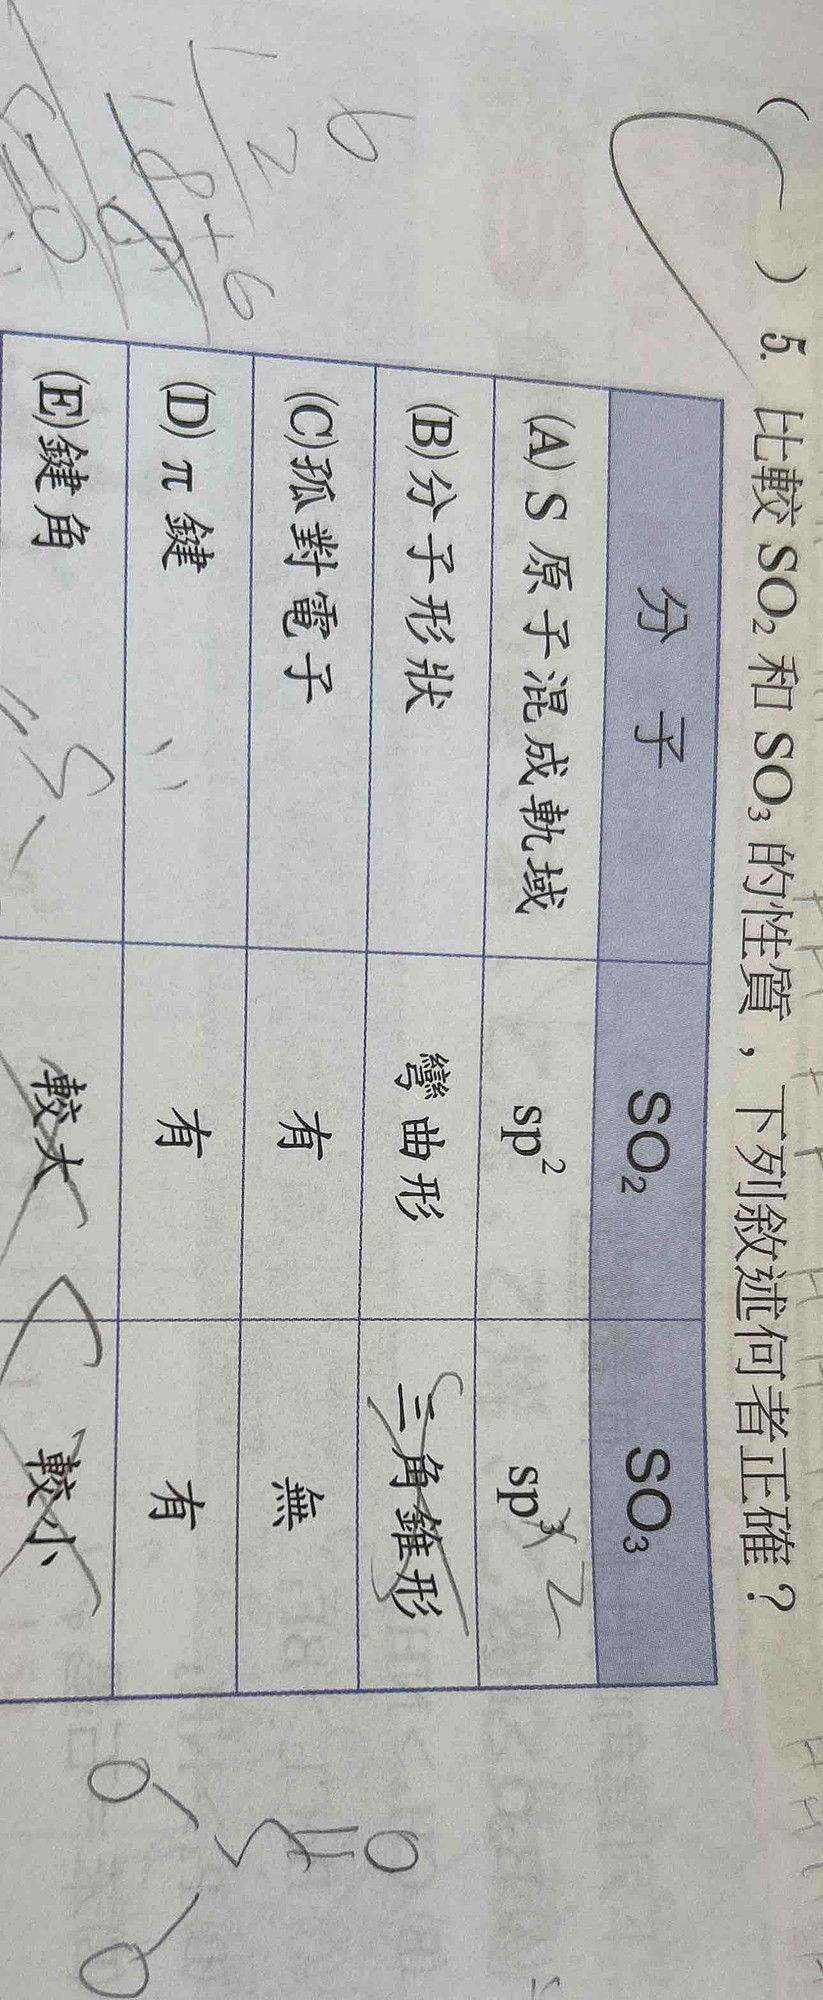 ( ) 5. 比較 SO₂ 和 SO₃ 的性質，下列敘述何者正確？
分 子 SO₂ SO₃
(A) S 原子混成軌域 sp² sp³ 2
(B) 分子形狀 彎曲形 三角錐形
(C) 孤對電子 有 無
(D) π 鍵 有 有
(E) 鍵角 較大 較小
6
2
8+6
O
S
O O